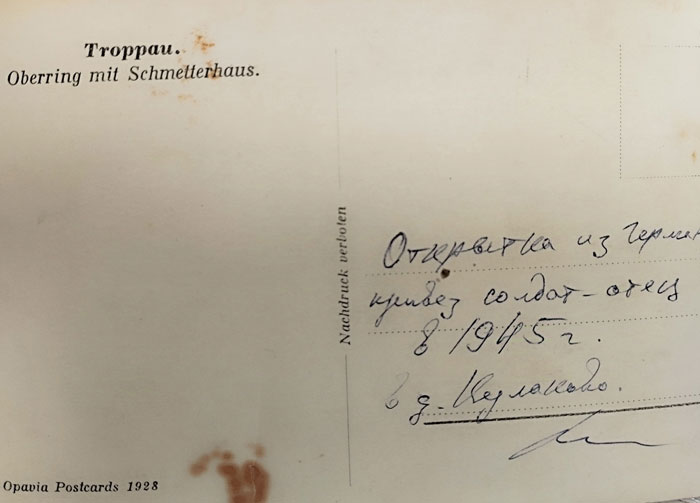 Troppau.
Oberring mit Schmetterhaus.
Nachdruck verboten
Открытка из Герман
привез солдат-отец
в 1945 г.
в д. Кулаково.
Opavia Postcards 1928